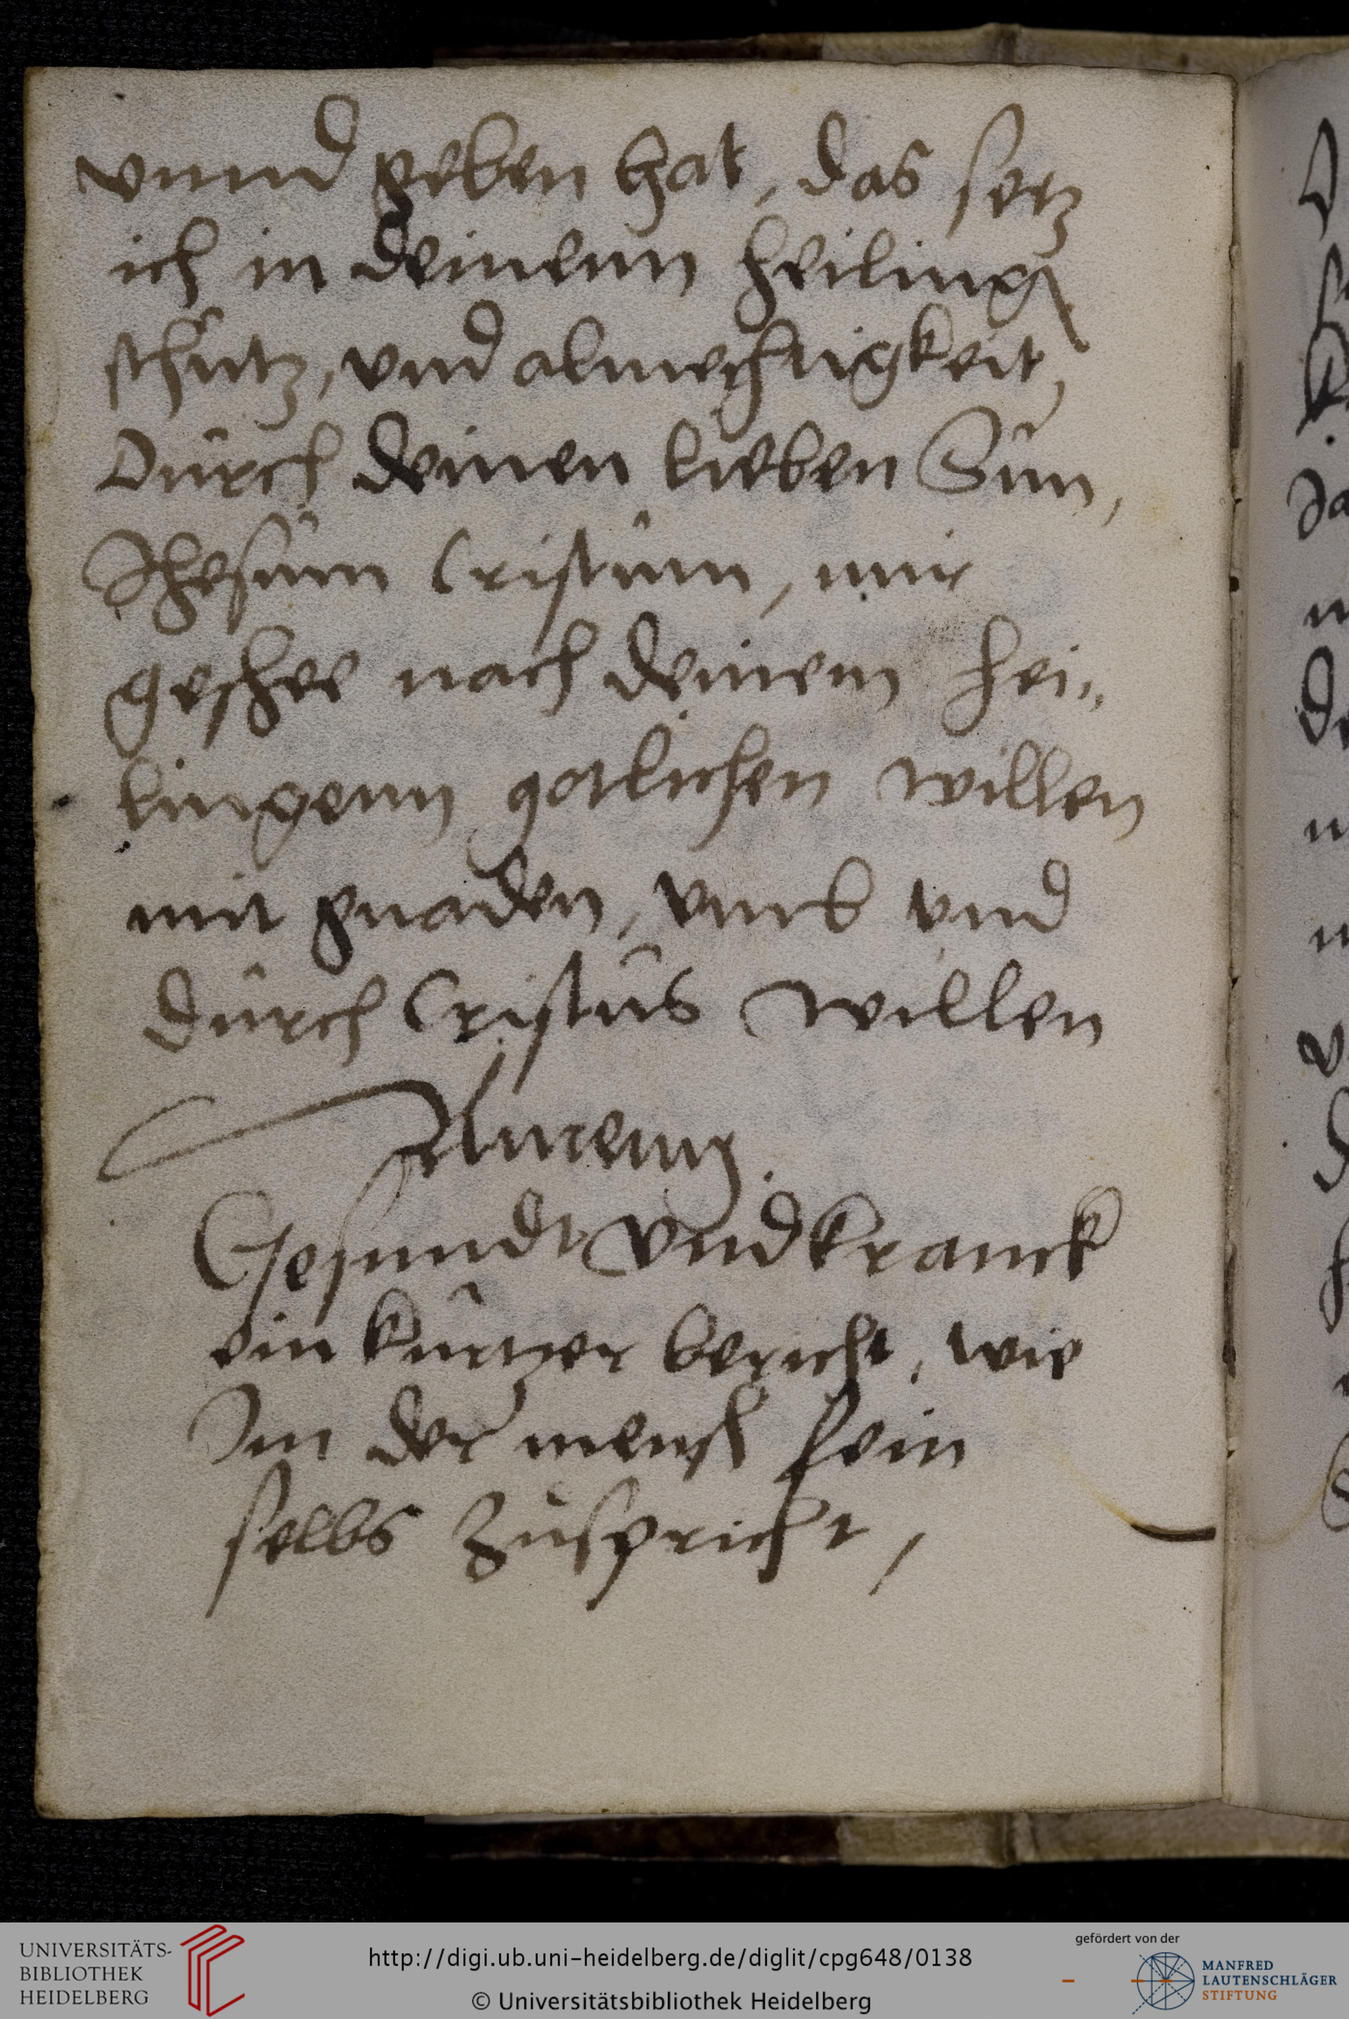 vnnd geben hat, das setz
ich in deinenn heiling
schutz, vnd almechtigkeit,
Durch deinen lieben Sun,
Jhesum Cristum, mir
geschee nach deinem hei„
lingenn gotlichen willen
mit gnaden, vmb vnd
durch Cristus willen
Amenn.
Gesundt vnd kranck
ein kurtzer bericht, wie
Im der mensch sein
selbs zuspricht,
UNIVERSITÄTS-
BIBLIOTHEK
HEIDELBERG
http://digi.ub.uni-heidelberg.de/diglit/cpg648/0138
© Universitätsbibliothek Heidelberg
gefördert von der
MANFRED
LAUTENSCHLÄGER
STIFTUNG